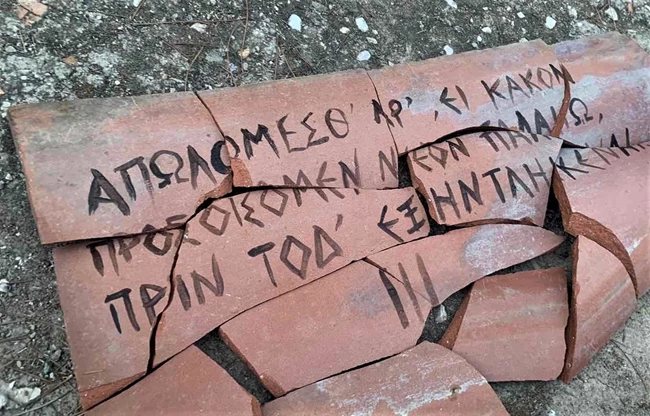 ΑΠΩΛΟΜΕΣΘ' ΑΡ', ΕΙ ΚΑΚΟΝ
ΠΡΟΣΟΙΣΟΜΕΝ ΝΕΟΝ ΠΑΛΑΙΩ,
ΠΡΙΝ ΤΟΔ' ΕΞΗΝΤΛΗΚΕΝΑΙ